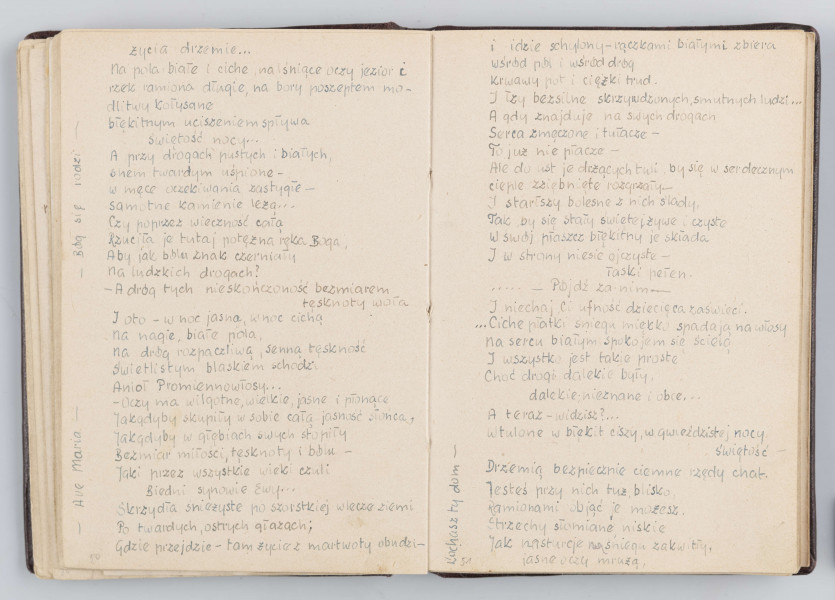 życia drzemie...
Na pola białe i ciche, na lśniące oczy jezior i
rzek ramiona długie, na bory poszeptem mo-
dlitwy kołysane
błękitnym uciszeniem spływa
świętość nocy...
A przy drogach pustych i białych,
snem twardym uśpione -
w męce oczekiwania zastygłe -
samotne kamienie leżą...
Czy poprzez wieczność całą
Rzuciła je tutaj potężna ręka Boga,
Aby jak bólu znak czerniały
na ludzkich drogach?
- A dróg tych nieskończoność bezmiarem
tęsknoty woła
I oto - w noc jasną, w noc cichą
na nagie, białe pola,
na dróg rozpaczliwą, senną tęskność
świetlistym blaskiem schodzi
Anioł Promiennowłosy...
- Oczy ma wilgotne, wielkie, jasne i płonące
Jakgdyby skupiły w sobie całą jasność słońca,
Jakgdyby w głębiach swych stopiły
Bezmiar miłości, tęsknoty i bólu -
Jaki przez wszystkie wieki czuli
Biedni synowie Ewy...
Skrzydła śnieżyste po szorstkiej wlecze ziemi
Po twardych, ostrych głazach;
Gdzie przejdzie - tam życie z martwoty obudzi -
- Ave Maria -
- Bóg się rodzi -
50
i idzie schylony - rączkami białymi zbiera
wśród pól i wśród dróg
krwawy pot i ciężki trud.
I łzy bezsilne skrzywdzonych, smutnych ludzi...
A gdy znajduje na swych drogach
Serca zmęczone i tułacze -
To już nie płacze -
Ale do ust je drżących tuli, by się w serdecznym
cieple zziębnięte rozgrzały -
I starłszy bolesne z nich ślady,
Tak by się stały święte, żywe i czyste
W swój płaszcz błękitny je składa
I w strony niesie ojczyste -
łaski pełen.
..... - Pójdź za nim -
I niechaj Ci ufność dziecięca zaświeci.
...Ciche płatki śniegu miękko spadają na włosy
na sercu białym spokojem się ścielą
I wszystko jest takie proste
Choć drogi dalekie były,
dalekie, nieznane i obce...
A teraz - widzisz?...
wtulone w błękit ciszy, w gwieździstej nocy
świętość -
Drzemią bezpiecznie ciemne rzędy chat.
Jesteś przy nich tuż, blisko,
Ramionami objąć je możesz.
Strzechy słomiane niskie
Jak nasturcje na śniegu zakwitły,
jasne oczy mrużą,
Kochasz ty dom -
51